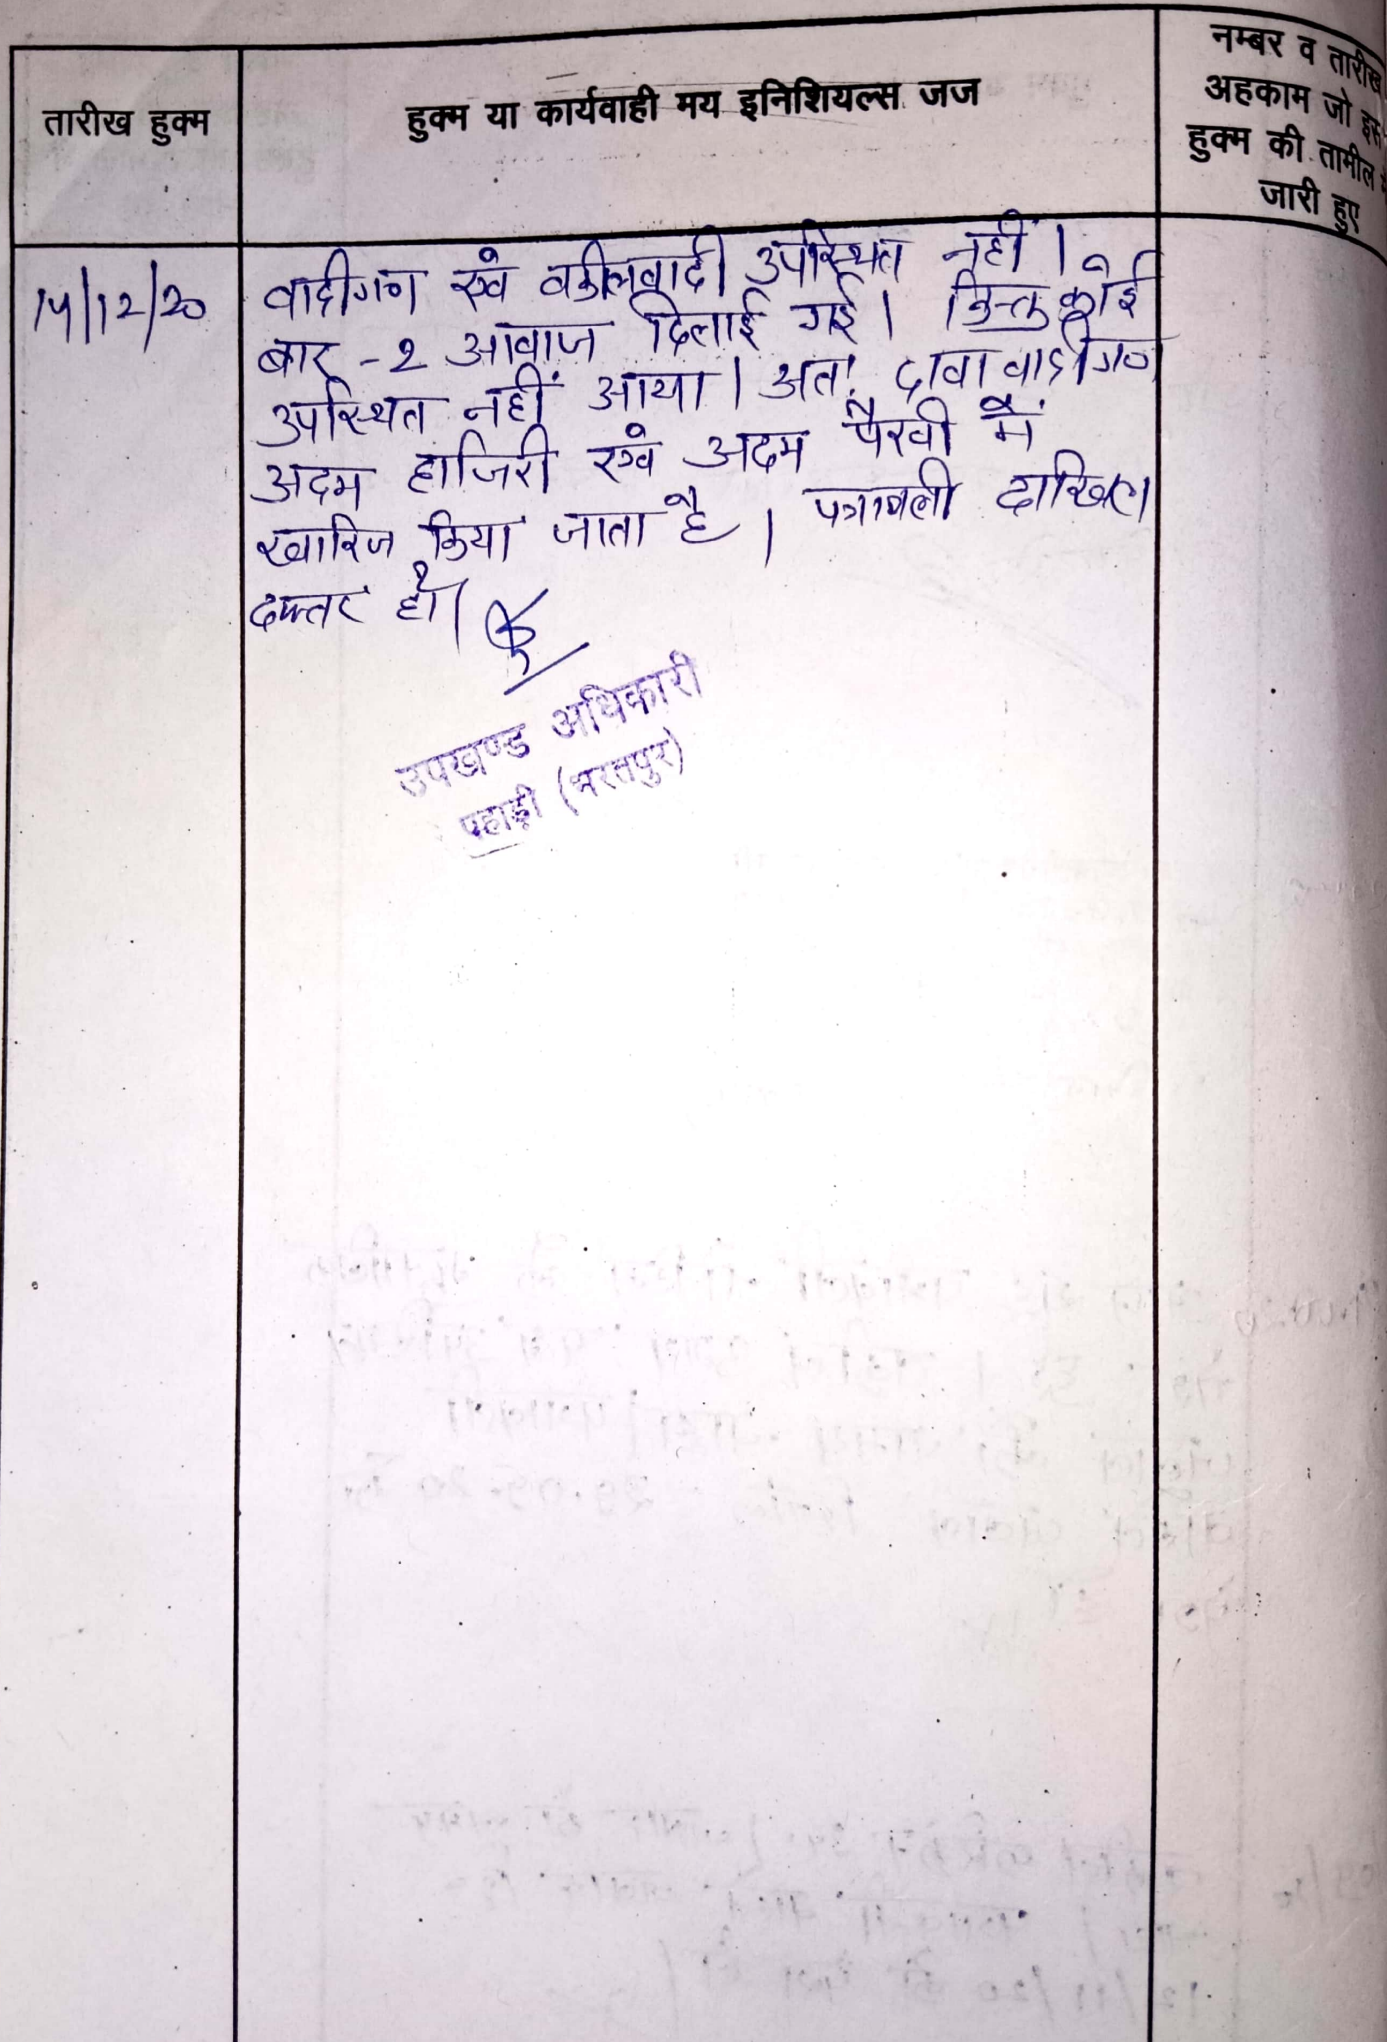 तारीख हुक्म
हुक्म या कार्यवाही मय इनिशियल्स जज
नम्बर व तारीख
अहकाम जो इस
हुक्म की तामील में
जारी हुए
14/12/20
वादीगण एवं वकीलवादी उपस्थित नहीं ।
बार -2 आवाज दिलाई गई । किन्तु कोई
उपस्थित नहीं आया । अतः दावा वादीगण
अदम हाजिरी एवं अदम पैरवी में
खारिज किया जाता है । पत्रावली दाखिल
दफ्तर हो ।
उपखण्ड अधिकारी
पहाड़ी (भरतपुर)